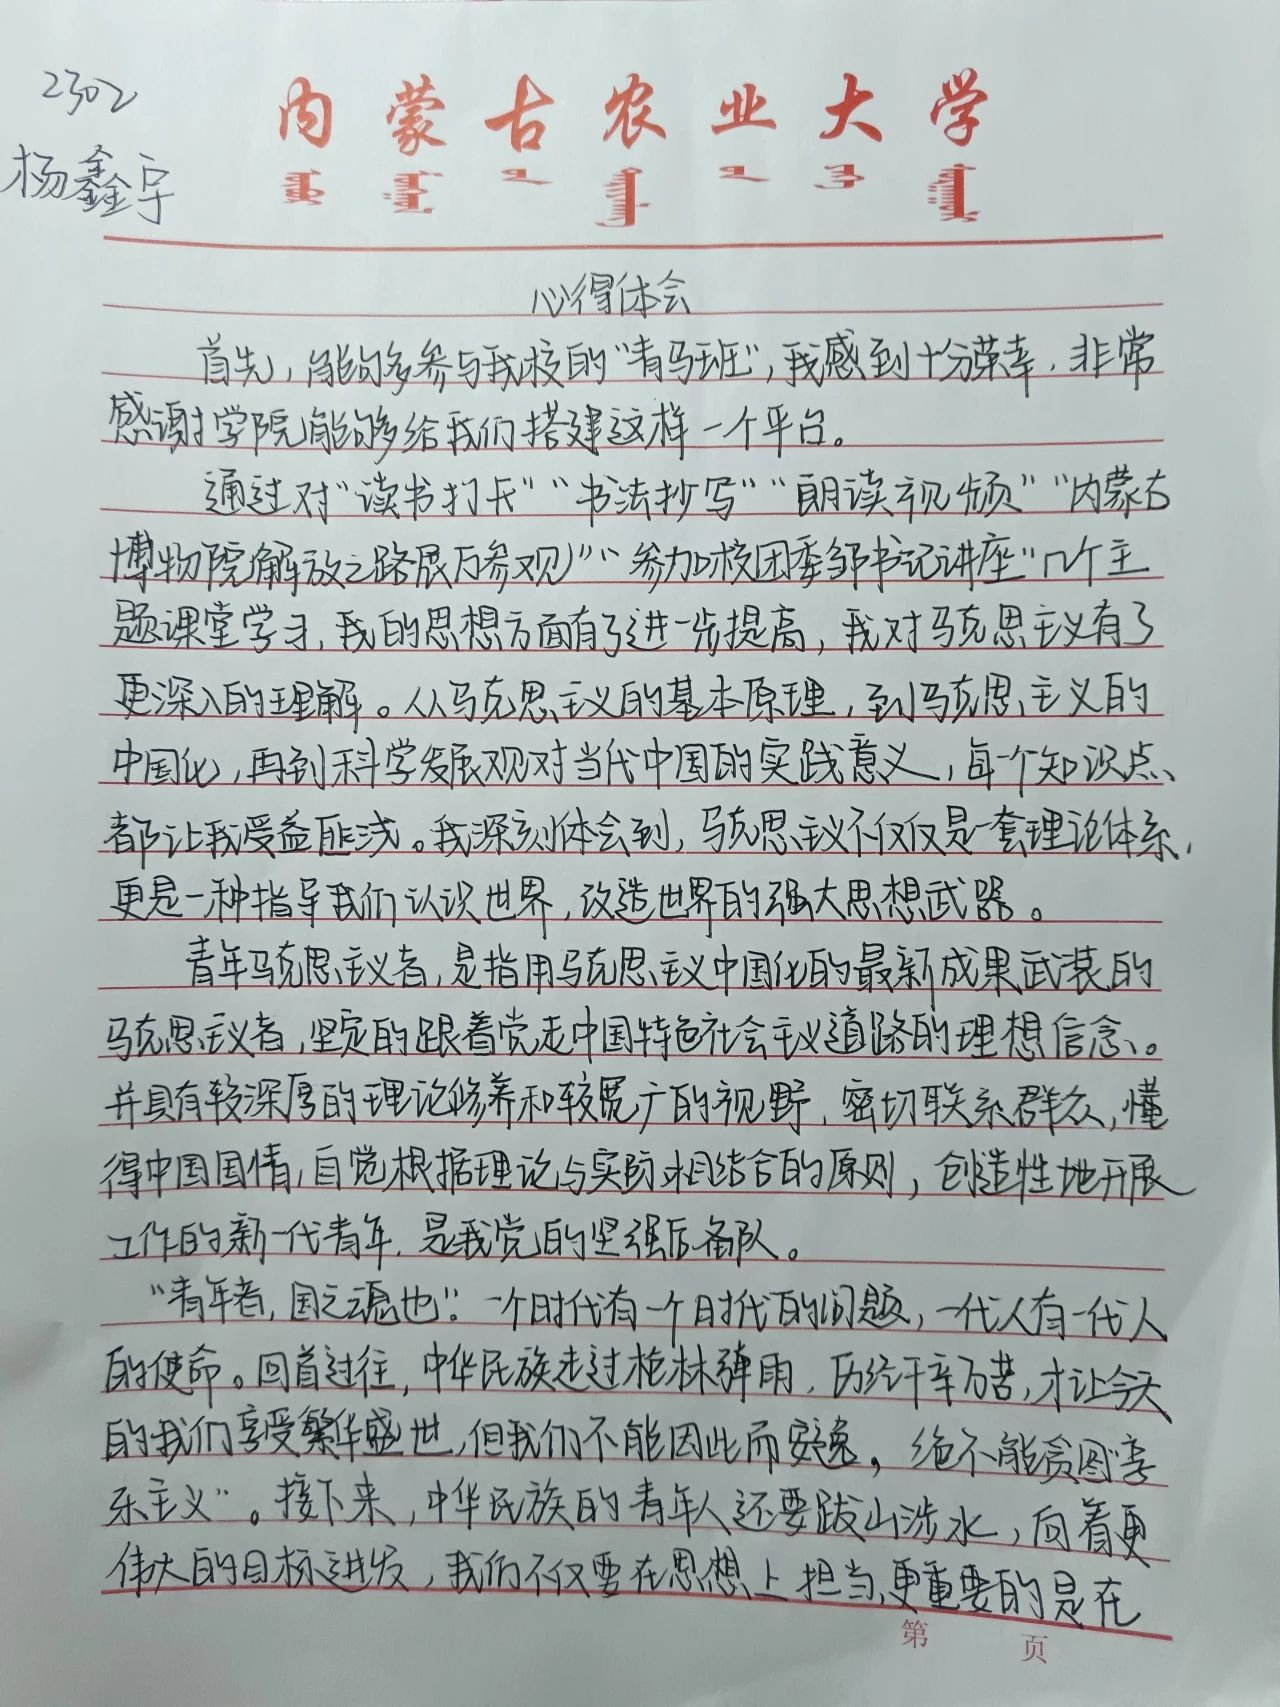 2302
杨鑫宇
内蒙古农业大学
心得体会
首先，能够多参与我校的“青马班”，我感到十分荣幸，非常
感谢学院能够给我们搭建这样一个平台。
通过对“读书打卡”“书法抄写”“朗读视频”“内蒙古
博物院解放之路展厅参观”“参加校团委邹书记讲座”几个主
题课堂学习，我的思想方面有了进一步提高，我对马克思主义有了
更深入的理解。从马克思主义的基本原理，到马克思主义的
中国化，再到科学发展观对当代中国的实践意义，每一个知识点
都让我受益匪浅。我深刻体会到，马克思主义不仅仅是一套理论体系，
更是一种指导我们认识世界，改造世界的强大思想武器。
青年马克思主义者，是指用马克思主义中国化的最新成果武装的
马克思主义者，坚定的跟着党走中国特色社会主义道路的理想信念。
并具有较深厚的理论修养和较宽广的视野，密切联系群众，懂
得中国国情，自觉根据理论与实际相结合的原则，创造性地开展
工作的新一代青年，是我党的坚强后备队。
“青年者，国之魂也”。一个时代有一个时代的问题，一代人有一代人
的使命。回首过往，中华民族走过枪林弹雨，历经千辛万苦，才让今天
的我们享受繁华盛世，但我们不能因此而安逸，绝不能贪图“享
乐主义”。接下来，中华民族的青年人还要跋山涉水，向着更
伟大的目标进发，我们不仅要在思想上担当，更重要的是在
第 页